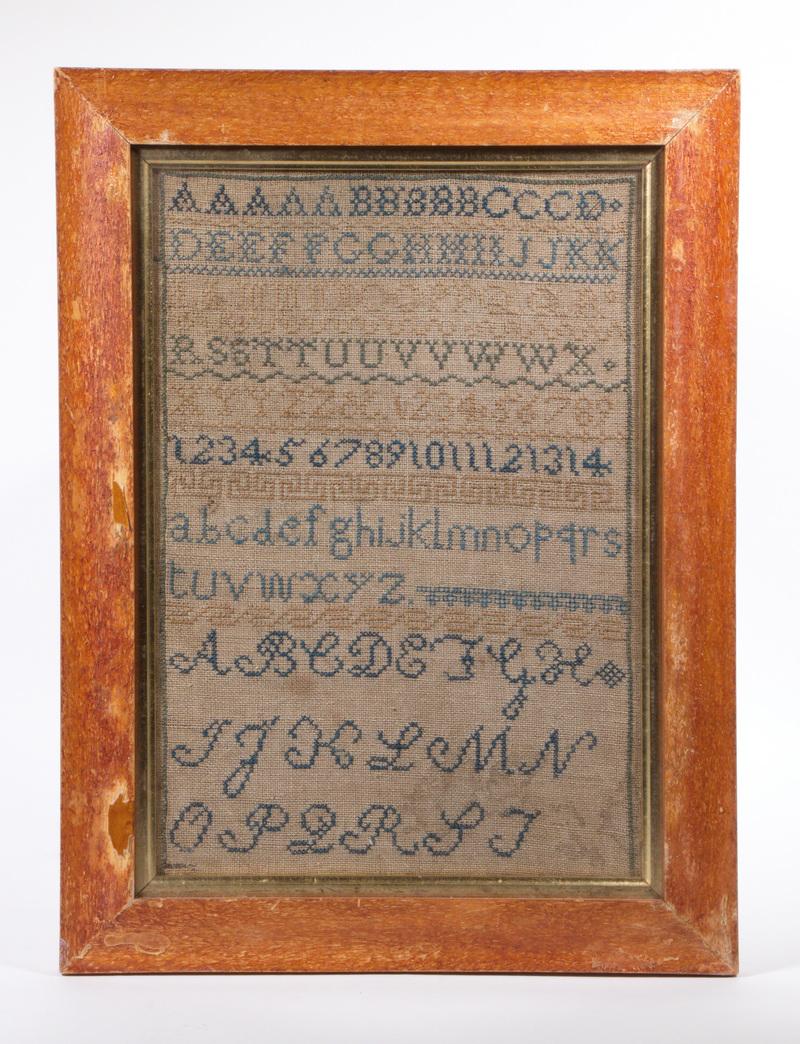 AAAAA BBBBBCCCD
DEEFFGGHHIIJJKK
RSSTTUUVVWWX
XYYZZ&C. 123456789
1234567891011121314
abcdefghijklmnopqrs
tuvwxyz.
ABCDEFGH
IJKLMN
OPQRST